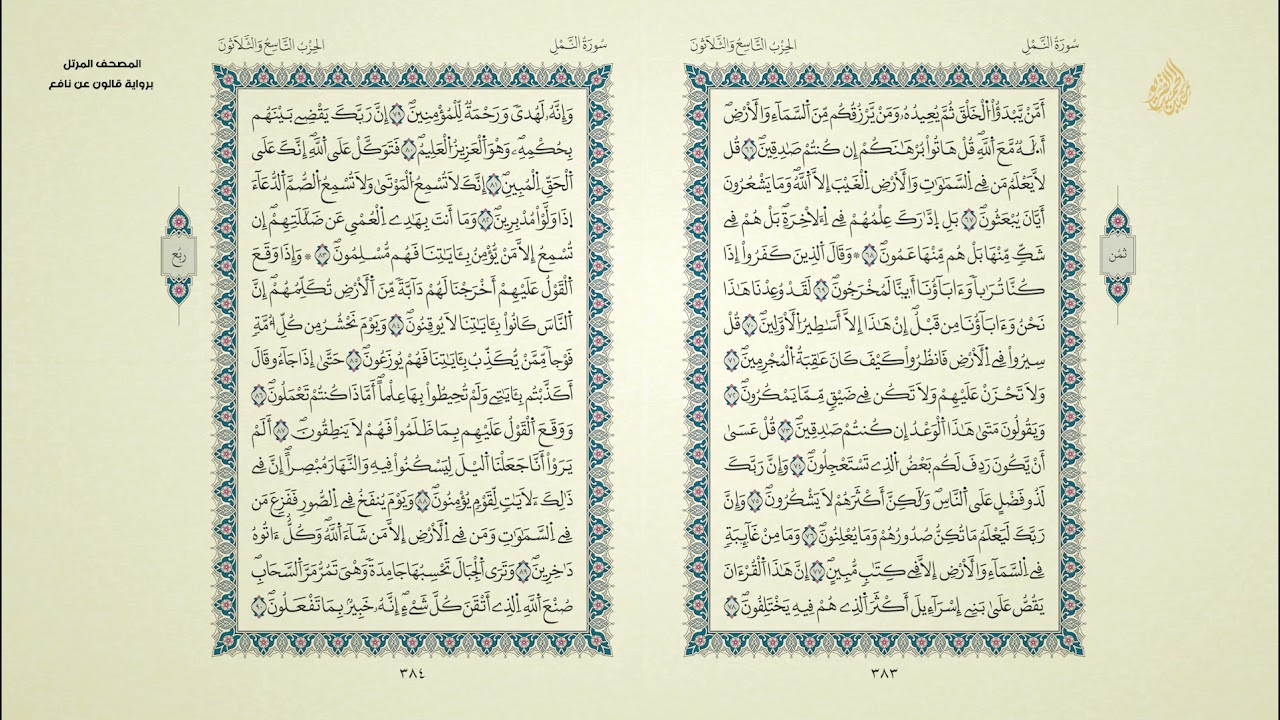 المصحف المرتل
برواية قالون عن نافع
سُورَةُ النَّمْلِ
الحِزْبُ التَّاسِعُ وَالثَّلَاثُونَ
أَمَّنْ يَّبْدَؤُاْ اُ۬لْخَلْقَ ثُمَّ يُعِيدُهُۥ وَمَنْ يَّرْزُقُكُم مِّنَ اَ۬لسَّمَآءِ وَالَارْضِۖ
أَ.لَٰهٞ مَّعَ اَ۬للَّهِۖ قُلْ هَاتُواْ بُرْهَٰنَكُمْ إِن كُنتُمْ صَٰدِقِينَۖ ٦٦ قُل
لَّا يَعْلَمُ مَن فِے اِ۬لسَّمَٰوَٰتِ وَالْأَرْضِ اِ۬لْغَيْبَ إِلَّا اَ۬للَّهُۖ وَمَا يَشْعُرُونَ
أَيَّانَ يُبْعَثُونَۖ ٦٧ بَلِ اِ۪دَّٰرَكَ عِلْمُهُمْ فِے اِ۬لْأٓخِرَةِۖ بَلْ هُمْ فِے
شَكّٖ مِّنْهَاۖ بَلْ هُم مِّنْهَا عَمُونَۖ ٦٨ ۞ وَقَالَ اَ۬لذِينَ كَفَرُواْ إِذَا
كُنَّا تُرَٰباٗ وَءَابَآؤُنَا أَئِنَّا لَمُخْرَجُونَۖ ٦٩ لَقَدْ وُعِدْنَا هَٰذَا
نَحْنُ وَءَابَآؤُنَا مِن قَبْلُۖ إِنْ هَٰذَا إِلَّا أَسَٰطِيرُ اُ۬لْأَوَّلِينَۖ ٧٠ قُلْ
سِيرُواْ فِے اِ۬لْأَرْضِ فَانظُرُواْ كَيْفَ كَانَ عَٰقِبَةُ اُ۬لْمُجْرِمِينَۖ ٧١
وَلَا تَحْزَنْ عَلَيْهِمْ وَلَا تَكُن فِے ضَيْقٖ مِّمَّا يَمْكُرُونَۖ ٧٢
وَيَقُولُونَ مَتَىٰ هَٰذَا اَ۬لْوَعْدُ إِن كُنتُمْ صَٰدِقِينَۖ ٧٣ قُلْ عَسَىٰ
أَنْ يَّكُونَ رَدِفَ لَكُم بَعْضُ اُ۬لذِے تَسْتَعْجِلُونَۖ ٧٤ وَإِنَّ رَبَّكَ
لَذُو فَضْلٍ عَلَى اَ۬لنَّاسِۖ وَلَٰكِنَّ أَكْثَرَهُمْ لَا يَشْكُرُونَۖ ٧٥ وَإِنَّ
رَبَّكَ لَيَعْلَمُ مَا تُكِنُّ صُدُورُهُمْ وَمَا يُعْلِنُونَۖ ٧٦ وَمَا مِنْ غَآئِبَةٖ
فِے اِ۬لسَّمَآءِ وَالْأَرْضِ إِلَّا فِے كِتَٰبٖ مُّبِينٍۖ ٧٧ إِنَّ هَٰذَا اَ۬لْقُرْءَانَ
يَقُصُّ عَلَىٰ بَنِے إِسْرَآءِيلَ أَكْثَرَ اَ۬لذِے هُمْ فِيهِ يَخْتَلِفُونَۖ ٧٨
٣٨٣
ثُمُن
سُورَةُ النَّمْلِ
الحِزْبُ التَّاسِعُ وَالثَّلَاثُونَ
وَإِنَّهُۥ لَهُدىٗ وَرَحْمَةٞ لِّلْمُؤْمِنِينَۖ ٧٩ إِنَّ رَبَّكَ يَقْضِے بَيْنَهُم
بِحُكْمِهِۦ وَهْوَ اَ۬لْعَزِيزُ اُ۬لْعَلِيمُۖ ٨٠ فَتَوَكَّلْ عَلَى اَ۬للَّهِۖ إِنَّكَ عَلَى
اَ۬لْحَقِّ اِ۬لْمُبِينِۖ ٨١ إِنَّكَ لَا تُسْمِعُ اُ۬لْمَوْتَىٰ وَلَا تُسْمِعُ اُ۬لصُّمَّ اَ۬لدُّعَآءَ
اِ۪ذَا وَلَّوْاْ مُدْبِرِينَۖ ٨٢ وَمَا أَنتَ بِهَٰدِے اِ۬لْعُمْيِ عَن ضَلَٰلَتِهِمْۖ إِن
تُسْمِعُ إِلَّا مَنْ يُّؤْمِنُ بِـَٔايَٰتِنَا فَهُم مُّسْلِمُونَۖ ٨٣ ۞ وَإِذَا وَقَعَ
اَ۬لْقَوْلُ عَلَيْهِمْ أَخْرَجْنَا لَهُمْ دَآبَّةٗ مِّنَ اَ۬لْأَرْضِ تُكَلِّمُهُمْۖ إِنَّ
اَ۬لنَّاسَ كَانُواْ بِـَٔايَٰتِنَا لَا يُوقِنُونَۖ ٨٤ وَيَوْمَ نَحْشُرُ مِن كُلِّ أُمَّةٖ
فَوْجاٗ مِّمَّنْ يُّكَذِّبُ بِـَٔايَٰتِنَا فَهُمْ يُوزَعُونَۖ ٨٥ حَتَّىٰ إِذَا جَآءُو قَالَ
أَكَذَّبْتُم بِـَٔايَٰتِے وَلَمْ تُحِيطُواْ بِهَا عِلْماً أَمَّاذَا كُنتُمْ تَعْمَلُونَۖ ٨٦
وَوَقَعَ اَ۬لْقَوْلُ عَلَيْهِم بِمَا ظَلَمُواْ فَهُمْ لَا يَنطِقُونَۖ ٨٧ أَلَمْ
يَرَوَاْ أَنَّا جَعَلْنَا اَ۬ليْلَ لِيَسْكُنُواْ فِيهِ وَالنَّهَارَ مُبْصِراًۖ إِنَّ فِے
ذَٰلِكَ ءَلَايَٰتٖ لِّقَوْمٖ يُؤْمِنُونَۖ ٨٨ وَيَوْمَ يُنفَخُ فِے اِ۬لصُّورِ فَفَزِعَ مَن
فِے اِ۬لسَّمَٰوَٰتِ وَمَن فِے اِ۬لْأَرْضِ إِلَّا مَن شَآءَ اَ۬للَّهُۖ وَكُلٌّ ءَاتُوهُ
دَٰخِرِينَۖ ٨٩ وَتَرَى اَ۬لْجِبَالَ تَحْسِبُهَا جَامِدَةٗ وَهْىَ تَمُرُّ مَرَّ اَ۬لسَّحَابِۖ
صُنْعَ اَ۬للَّهِ اِ۬لذِے أَتْقَنَ كُلَّ شَےْءٍۖ إِنَّهُۥ خَبِيرُۢ بِمَا تَفْعَلُونَۖ ٩٠
٣٨٤
رُبُع